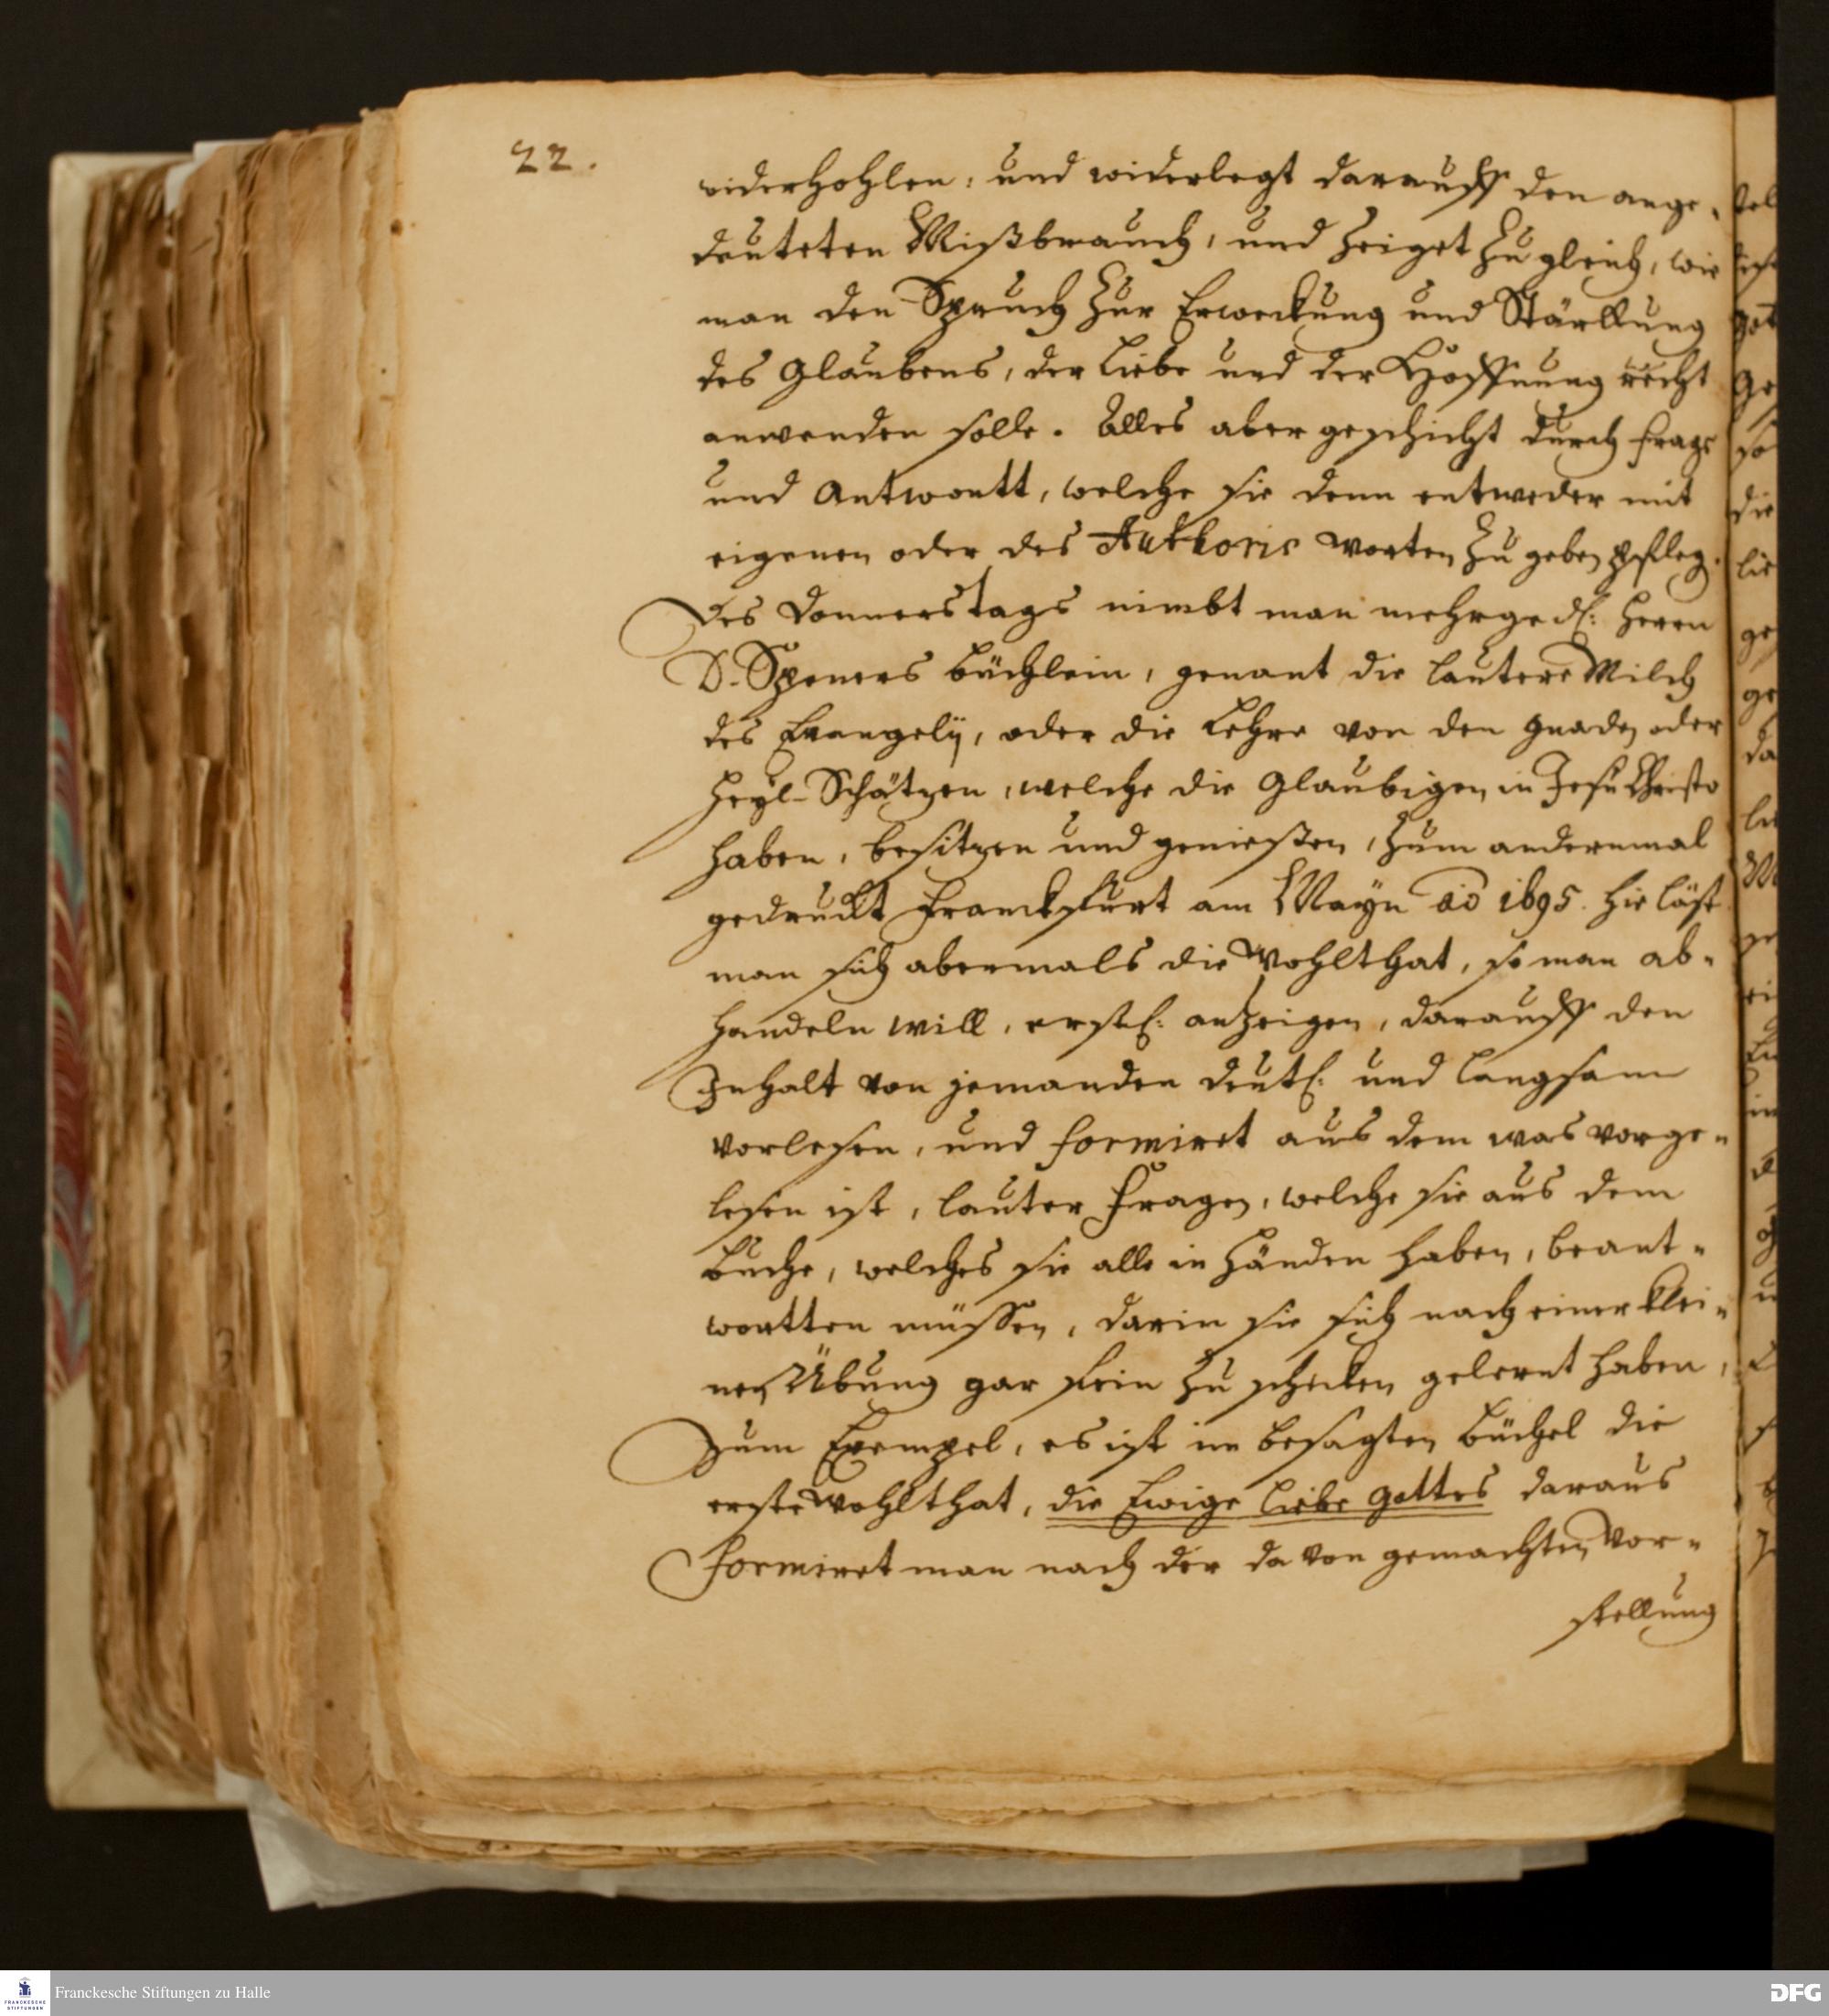 22.
widerhohlen, und widerlegt darauff den ange-
deuteten Mißbrauch, und zeiget zu gleich, wie
man den Spruch zur Erweckung und Stärckung
des Glaubens, der Liebe und der Hoffnung recht
anwenden solle. Alles aber geschicht durch Frage
und Antwortt, welche sie denn entweder mit
eigenen oder des Authoris worten zu geben pfleg.
Des Donnerstags nimbt man mehrgedl: Herrn
D. Speners Büchlein, genant die lautere Milch
des Evangelij, oder die Lehre von den Gnaden oder
Heyl-Schätzen, welche die Glaubigen in Jesu Christo
haben, besitzen und genießen, zum andernmal
gedruckt Franckfurt am Mayn ao 1695. Hie läst
man sich abermals die Wohlthat, so man ab-
handeln will, erstl: anzeigen, darauff den
Inhalt von jemanden deutl: und langsam
vorlesen, und formiret aus dem was vorge-
lesen ist, lauter Fragen, welche sie aus dem
Buche, welches sie alle in Händen haben, beant-
wortten müssen, darin sie sich nach einer klei-
nen Übung gar fein zu schicken gelernt haben,
Zum Exempel, es ist im besagten Büchel die
erste Wohlthat, die Ewige Liebe Gottes daraus
formiret man nach der davon gemachten Vor-
stellung
Franckesche Stiftungen zu Halle
FRANCKESCHE
STIFTUNGEN
DFG